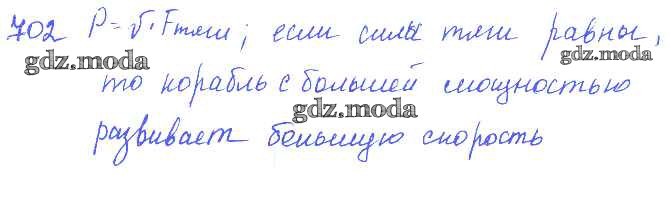 702 P = υ·Fтяги; если силы тяги равны,
gdz.moda gdz.moda
то корабль с большей мощностью
gdz.moda
развивает большую скорость